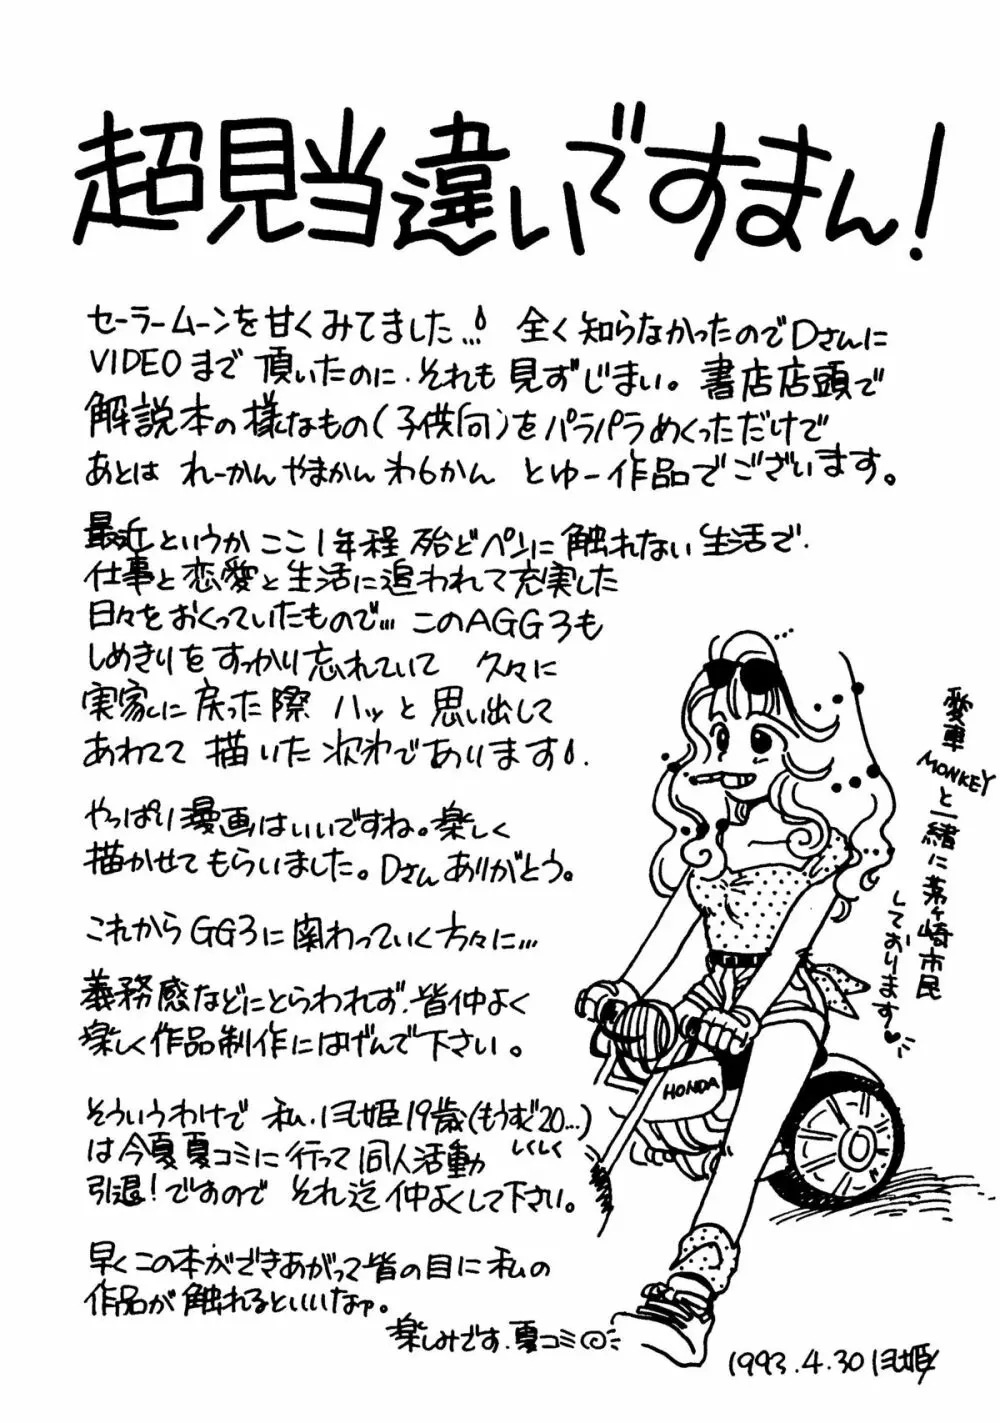 超見当違いですまん!
セーラームーンを甘くみてました… 全く知らなかったのでDさんに
VIDEOまで頂いたのに、それも見ずじまい。書店店頭で
解説本の様なもの(子供向)をパラパラめくっただけで
あとは れーかん やまかん わ6かん とゆー作品でございます。
最近というかここ1年程 殆どペンに触れない生活で、
仕事と恋愛と生活に追われて充実した
日々をおくっていたもので… このAGG3も
しめきりをすっかり忘れていて 久々に
実家に戻った際 ハッと思い出して
あわてて描いた次第であります。
やっぱり漫画はいいですね。楽しく
描かせてもらいました。Dさんありがとう。
これからGG3に関わっていく方々に…
義務感などにとらわれず、皆仲よく
楽しく作品制作にはげんで下さい。
そういうわけで 私、姫19歳(もうすぐ20…)
は今夏夏コミに行って同人活動 しくしく
引退!ですので それ迄仲よくして下さい。
早くこの本ができあがって皆の目に私の
作品が触れるといいなァ。
楽しみです、夏コミ
愛車MONKEYと一緒に茅ヶ崎市民
しております♥
HONDA
1993.4.30 姫